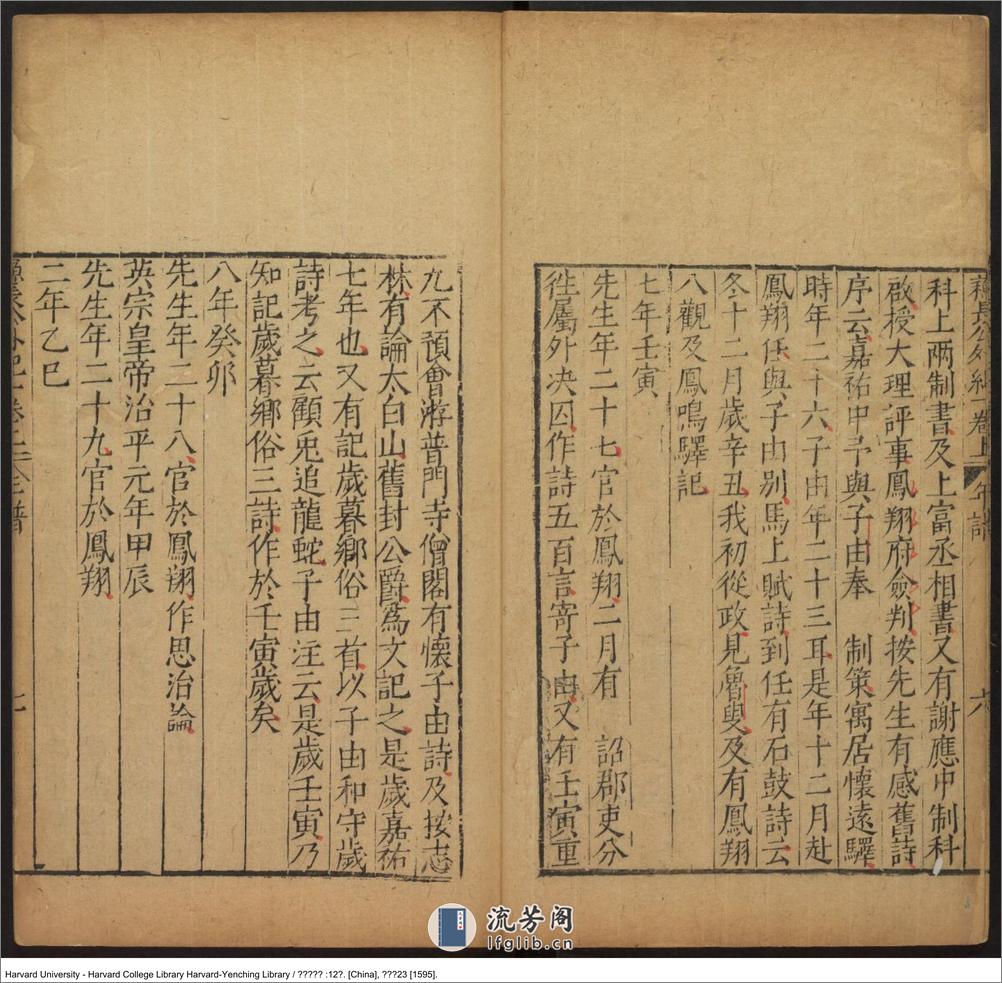 蘇長公外紀 卷上 年譜 六
科上兩制書及上富丞相書又有謝應中制科
啟授大理評事鳳翔府僉判按先生有感舊詩
序云嘉祐中予與子由奉 制策寓居懷遠驛
時年二十六子由年二十三耳是年十二月赴
鳳翔任與子由別馬上賦詩到任有石鼓詩云
冬十二月歲辛丑我初從政見魯叟及有鳳翔
八觀及鳳鳴驛記
七年壬寅
先生年二十七官於鳳翔二月有 詔郡吏分
徃屬外决囚作詩五百言寄子由又有壬寅重
九不預會游普門寺僧閣有懷子由詩及按志
林有論太白山舊封公爵爲文記之是歲嘉祐
七年也又有記歲暮鄉俗三首以子由和守歲
詩考之云顧兎追龍蛇子由注云是歲壬寅乃
知記歲暮鄉俗三詩作於壬寅歲矣
八年癸卯
先生年二十八官於鳳翔作思治論
英宗皇帝治平元年甲辰
先生年二十九官於鳳翔
二年乙巳
七
流芳阁
lfglib.cn
Harvard University - Harvard College Library Harvard-Yenching Library / ????? :12?. [China], ???23 [1595].